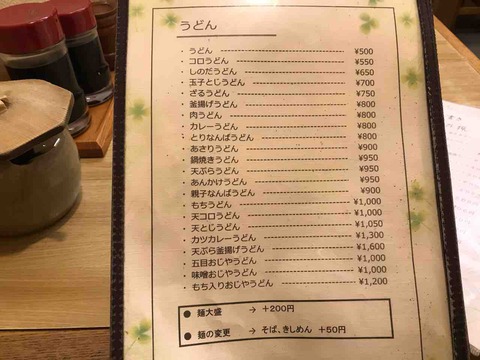 うどん
・うどん ¥500
・コロうどん ¥550
・しのだうどん ¥650
・玉子とじうどん ¥700
・ざるうどん ¥750
・釜揚げうどん ¥800
・肉うどん ¥800
・カレーうどん ¥800
・とりなんばうどん ¥800
・あさりうどん ¥900
・鍋焼きうどん ¥950
・天ぷらうどん ¥950
・あんかけうどん ¥950
・親子なんばうどん ¥900
・もちうどん ¥1,000
・天コロうどん ¥1,000
・天とじうどん ¥1,050
・カツカレーうどん ¥1,300
・天ぷら釜揚げうどん ¥1,600
・五目おじやうどん ¥1,000
・味噌おじやうどん ¥1,000
・もち入りおじやうどん ¥1,200
● 麺大盛 → +200円
● 麺の変更 → そば、きしめん +50円